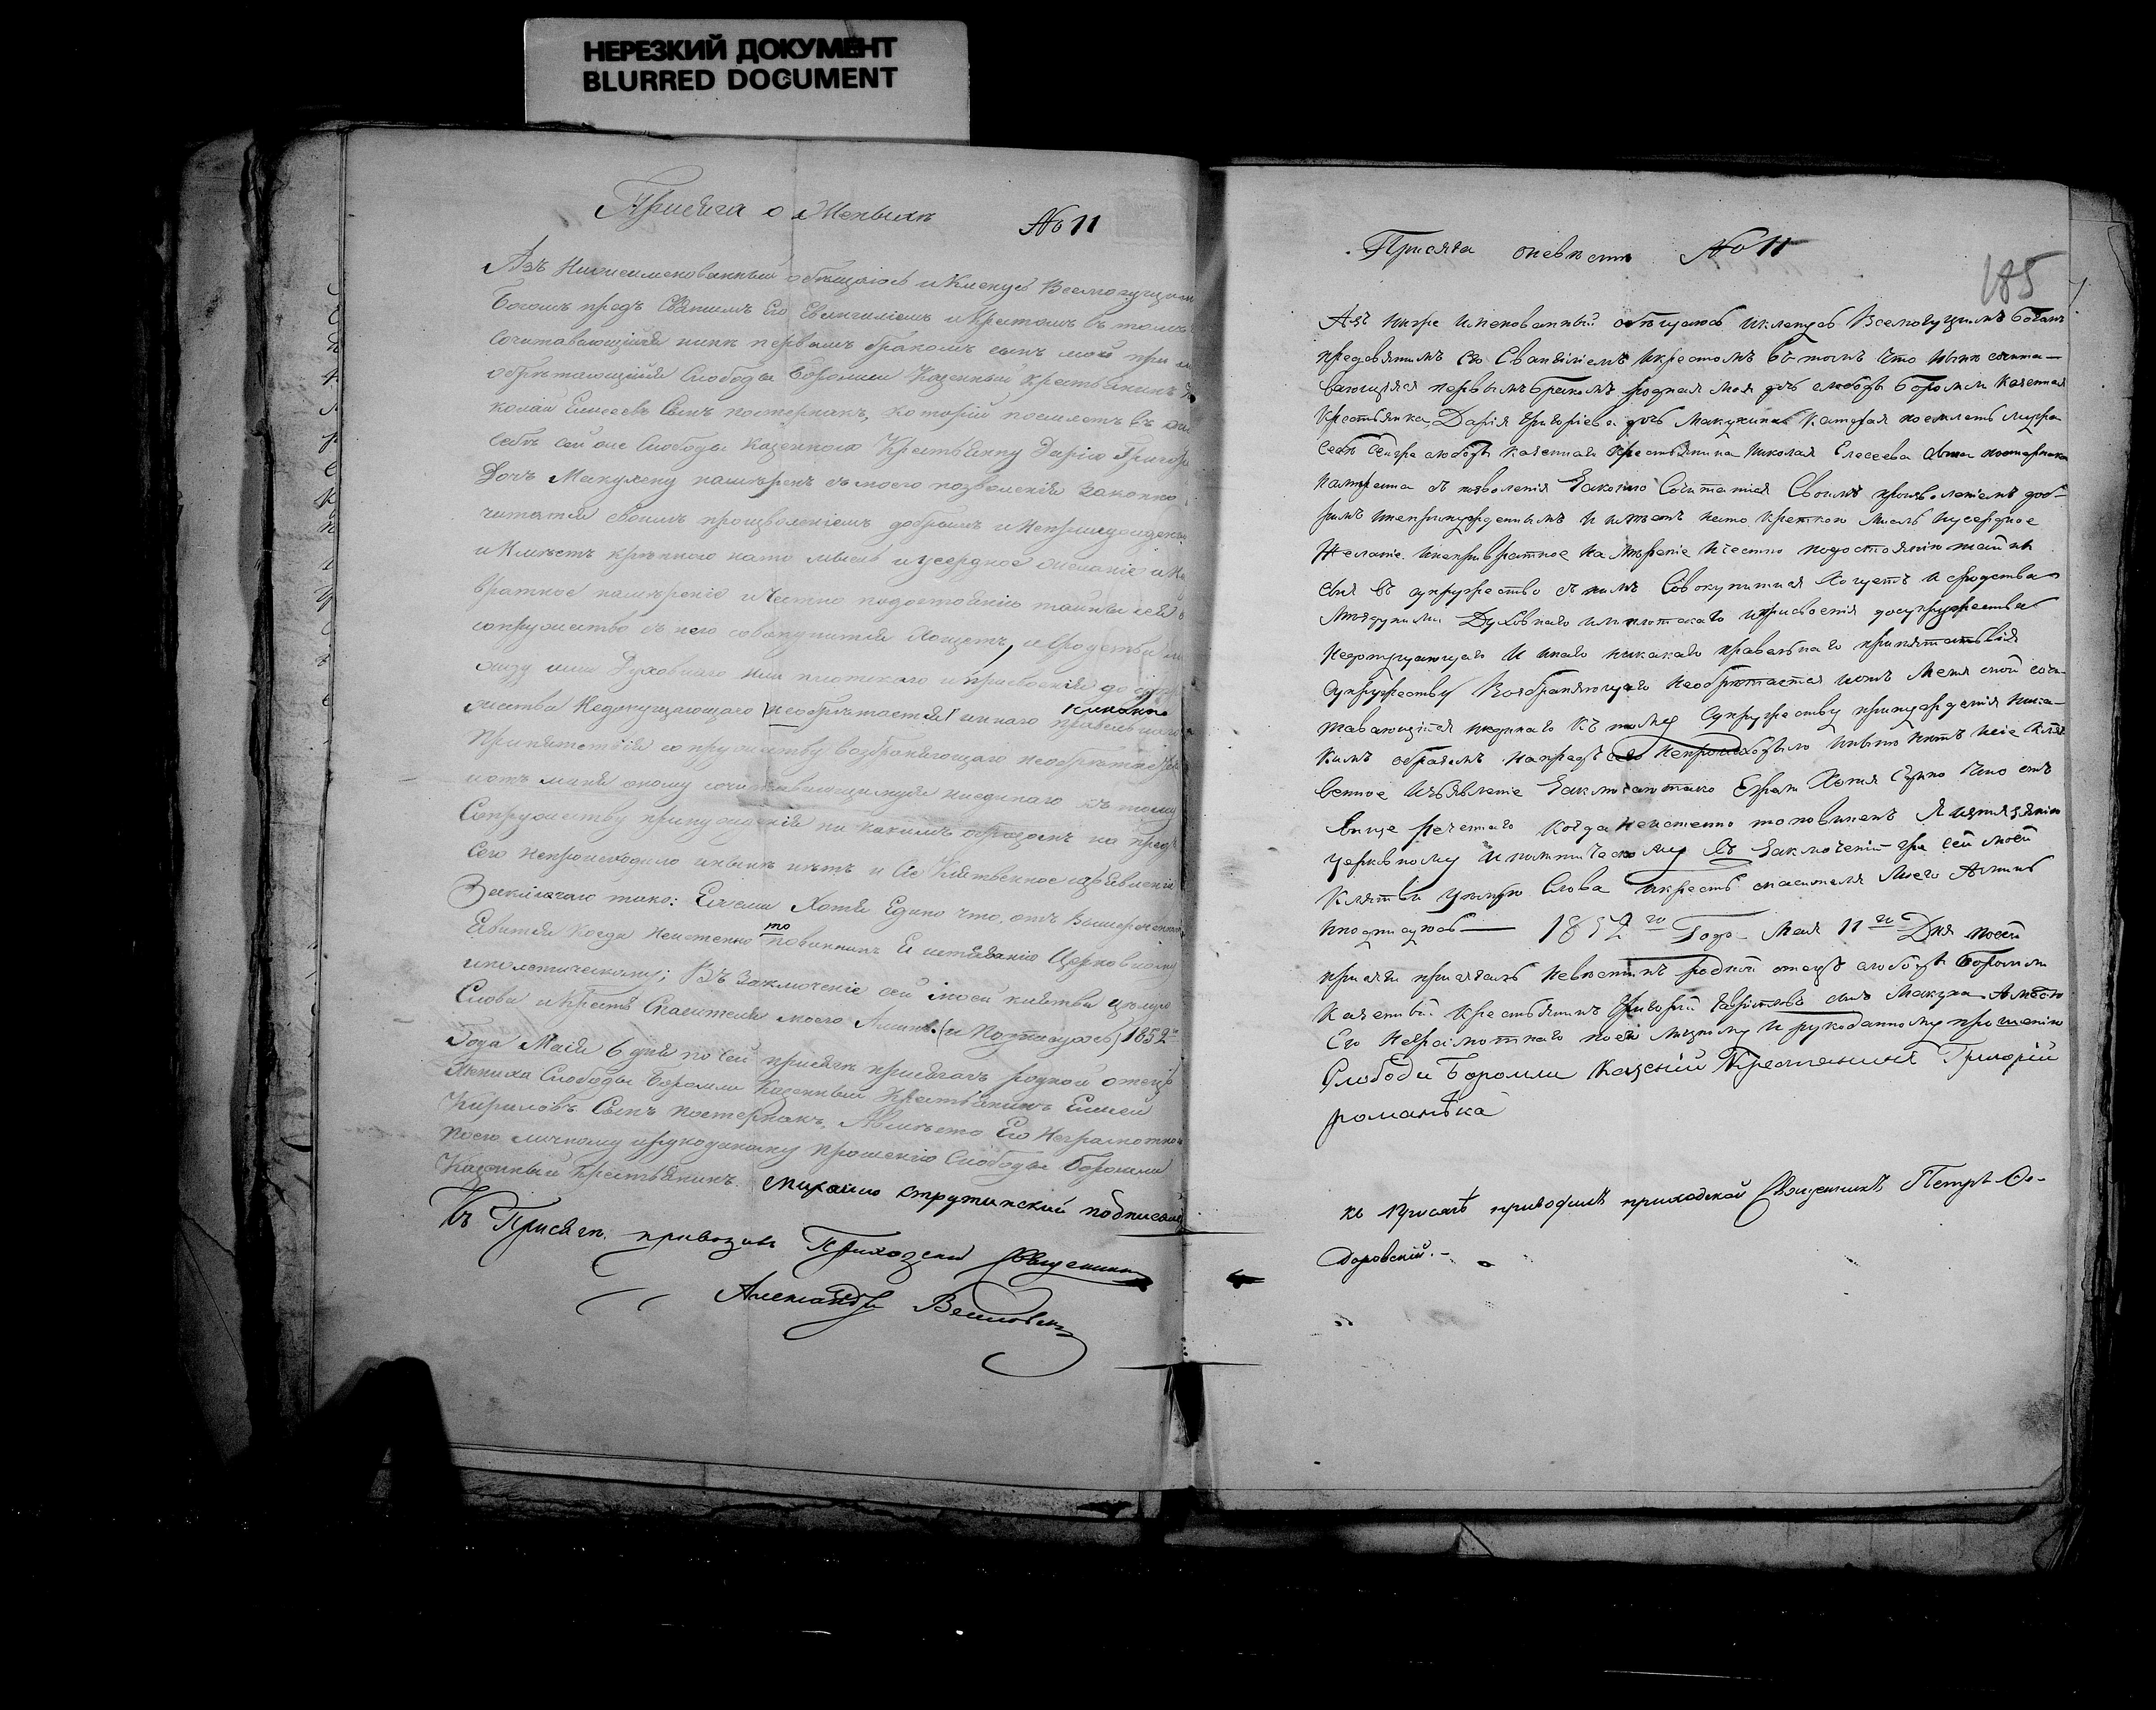 НЕРЕЗКИЙ ДОКУМЕНТ
BLURRED DOCUMENT
Присяга о Женихѣ №11
Азъ нижеименованный обѣщаюсь и Кленусь Всемогущимъ
Богомъ предъ Святимъ Его Евангиліемъ и Крестомъ въ томъ
Сочитавающійся нинѣ первымъ бракомъ сынъ мой при
обрѣтающійся Слободы Боромли Казенный Крестьянинъ
колай Елисеевъ Сынъ пастернакъ, который поемлетъ въ
себѣ сей же Слободы казенного Крестьянку Дарію Григо
Дочь Макухену намѣренъ съ моего позволенія Законно
читатся своимъ произволеніемъ добримъ и Непринужден
и Имѣетъ крѣпкого нато мысль и усердное желаніе и Не
вратное намѣреніе и Честно подостоянію тайны сея
сопружество съ него совокупится Хощетъ, и сродства
жду ими Духовнаго или плотского и присвоенія до
жества Недопущающаго необрѣтается инаго никакого правельнаго
Препятствія сопружеству возбраняющаго необрѣтае
иотъ мини оному сочитавающемуся ниединаго къ тому
Сопружеству принужденія ни какимъ образомъ на предъ
Сего Непроисходило инынѣ нѣтъ и Сіе Клятвенное изъявленіе
Заключаю тако: Ежели Хотя Едино что, отъ Вышереченна
Евится Когда Неистенно то повиненъ Е истязанію Церковному
иполетическому; Въ Заключеніе сей моей клятви цѣлую
Слова и Крестъ Спасителя моего Аминь (и Потписуюсь) 1852го
Года Маія 6 дня по сей присяги присягалъ родной отецъ
Жениха Слободы Боромли Казенный Крестьянинъ Елисей
Кириловъ Сынъ пастернакъ, Авмѣсто Его Неграмотного
поего личному ирукоданому прошенію Слободы Боромли
Казенный Крестьянинъ. Михайло Струтинский подписался
Къ Присягѣ привозилъ Приходскій Священникъ
Александръ
Присяга оневѣсти №11
185
Азъ ниже именованный обѣщаюсь икленусь Всемогущимъ Богомъ
предсвятимъ Его Евангиліемъ икрестомъ въ томъ что нынѣ сочита-
вающаяся первымъ бракомъ родная моя дочь слободы Боромли Казенная
Крестьянка, Дарія Григоріева дочь Макухина Которая поемлетъ мужа
себѣ сейже слободы казенного Крестьянина Николая Елесеева сына пастернака
намѣренна съ позволенія Законно Сочитатися Своимъ произволеніемъ доб-
римъ инепринужденнымъ и имѣетъ нато крепкою мысль иусердное
Желаніе инепривратное намѣреніе ичестно подостоянію тайны
сея въ супружество съ нимъ Совокупитися Хощетъ и сродства
между ими Духовнаго или плотскаго иприсвоенія досупружества
недопущающаго И инаго никакаго правельнаго припятствія
Супружеству Возбраняющаго необрѣтается иотъ меня оной сочи-
тавающейся ниединаго къ тому Супружеству принужденія ника-
кимъ образомъ напредъ сего непроисходило инынѣ нѣтъ исіе клят
венное изъявленіе Заключаю тако Ежели Хотя Едино что отъ
више реченаго Когда неистенно то повиненъ Я истязанію
церковному иполитическому Въ Заключеніи же сей моей
Клятвы цѣлую Слова икрестъ спасителя моего Аминь
иподписуюсь — 1852го Года Мая 11го Дня посей
присяги присягалъ невѣстинъ родной отецъ слободы Боромли
Казенный Крестьянинъ Григорій сынъ Макуха Амѣсто
Его Неграмотнаго поего личному И рукоданному прошенію
Слободи Боромли Казеній Крестьянинъ Григорій
романѣка
къ присягѣ приводилъ приходской Священникъ Петръ Ѳе-
доровскій.-